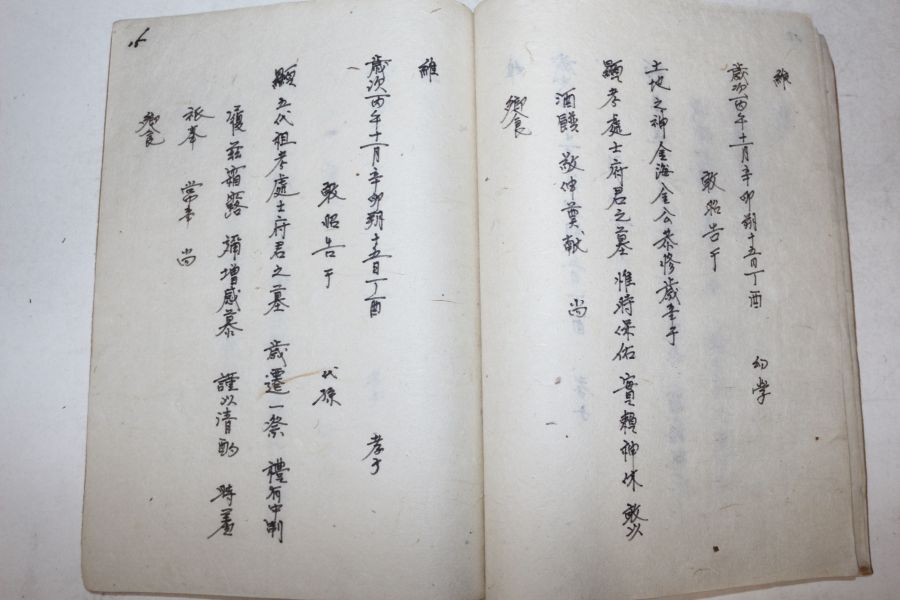 維
歲次丙午十一月辛卯朔十五日丁酉 幼學
敢昭告于
土地之神金海金公恭修歲事于
顯考處士府君之墓 惟時保佑 實賴神休 敢以
酒饌 敬伸奠獻 尚
饗
維
歲次丙午十一月辛卯朔十五日丁酉 孝子
敢昭告于 代孫
顯五代祖考處士府君之墓 歲遷一祭 禮有中制
履茲霜露 彌增感慕 謹以清酌 時羞
祇奉 常事 尚
饗